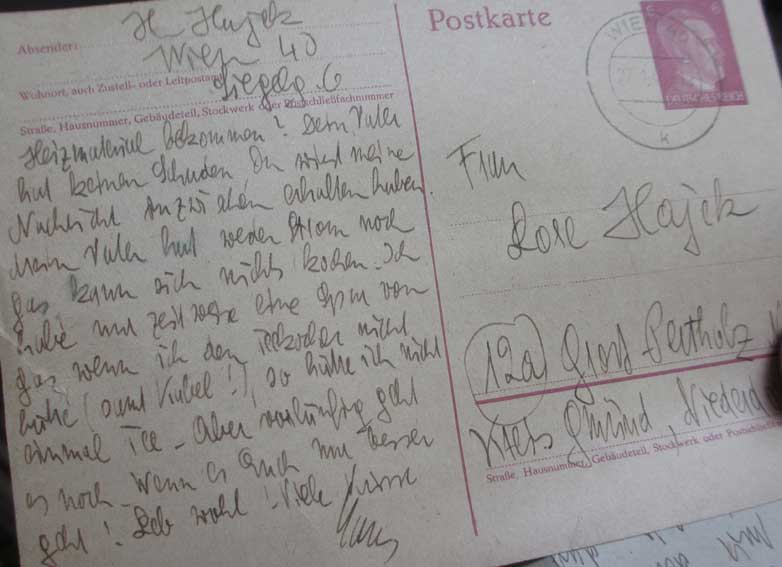 Postkarte
Absender: H Hajek
Wien 40
Wohnort, auch Zustell- oder Leitpostamt
Siegelg. 6
Straße, Hausnummer, Gebäudeteil, Stockwerk oder Postschließfachnummer
Heizmaterial bekommen? Dein Vater
hat keinen Schaden Du wirst meine
Nachricht inzwischen erhalten haben.
Mein Vater hat weder Strom noch
gas kann sich nichts kochen. Ich
habe nur zeitweise eine Spur von
gas wenn ich den Teekocher nicht
hätte (samt Kübel!), so hätte ich nicht
einmal Tee - Aber vorläufig geht
es noch. Wenn es Euch nur besser
geht! Leb wohl! Viele Küsse
Hans
WIEN
k
6
6
DEUTSCHES REICH
Frau
Rose Hajek
12a) Gross Pertholz
Kreis Gmünd, Niederd
Straße, Hausnummer, Gebäudeteil, Stockwerk oder Postschließfach